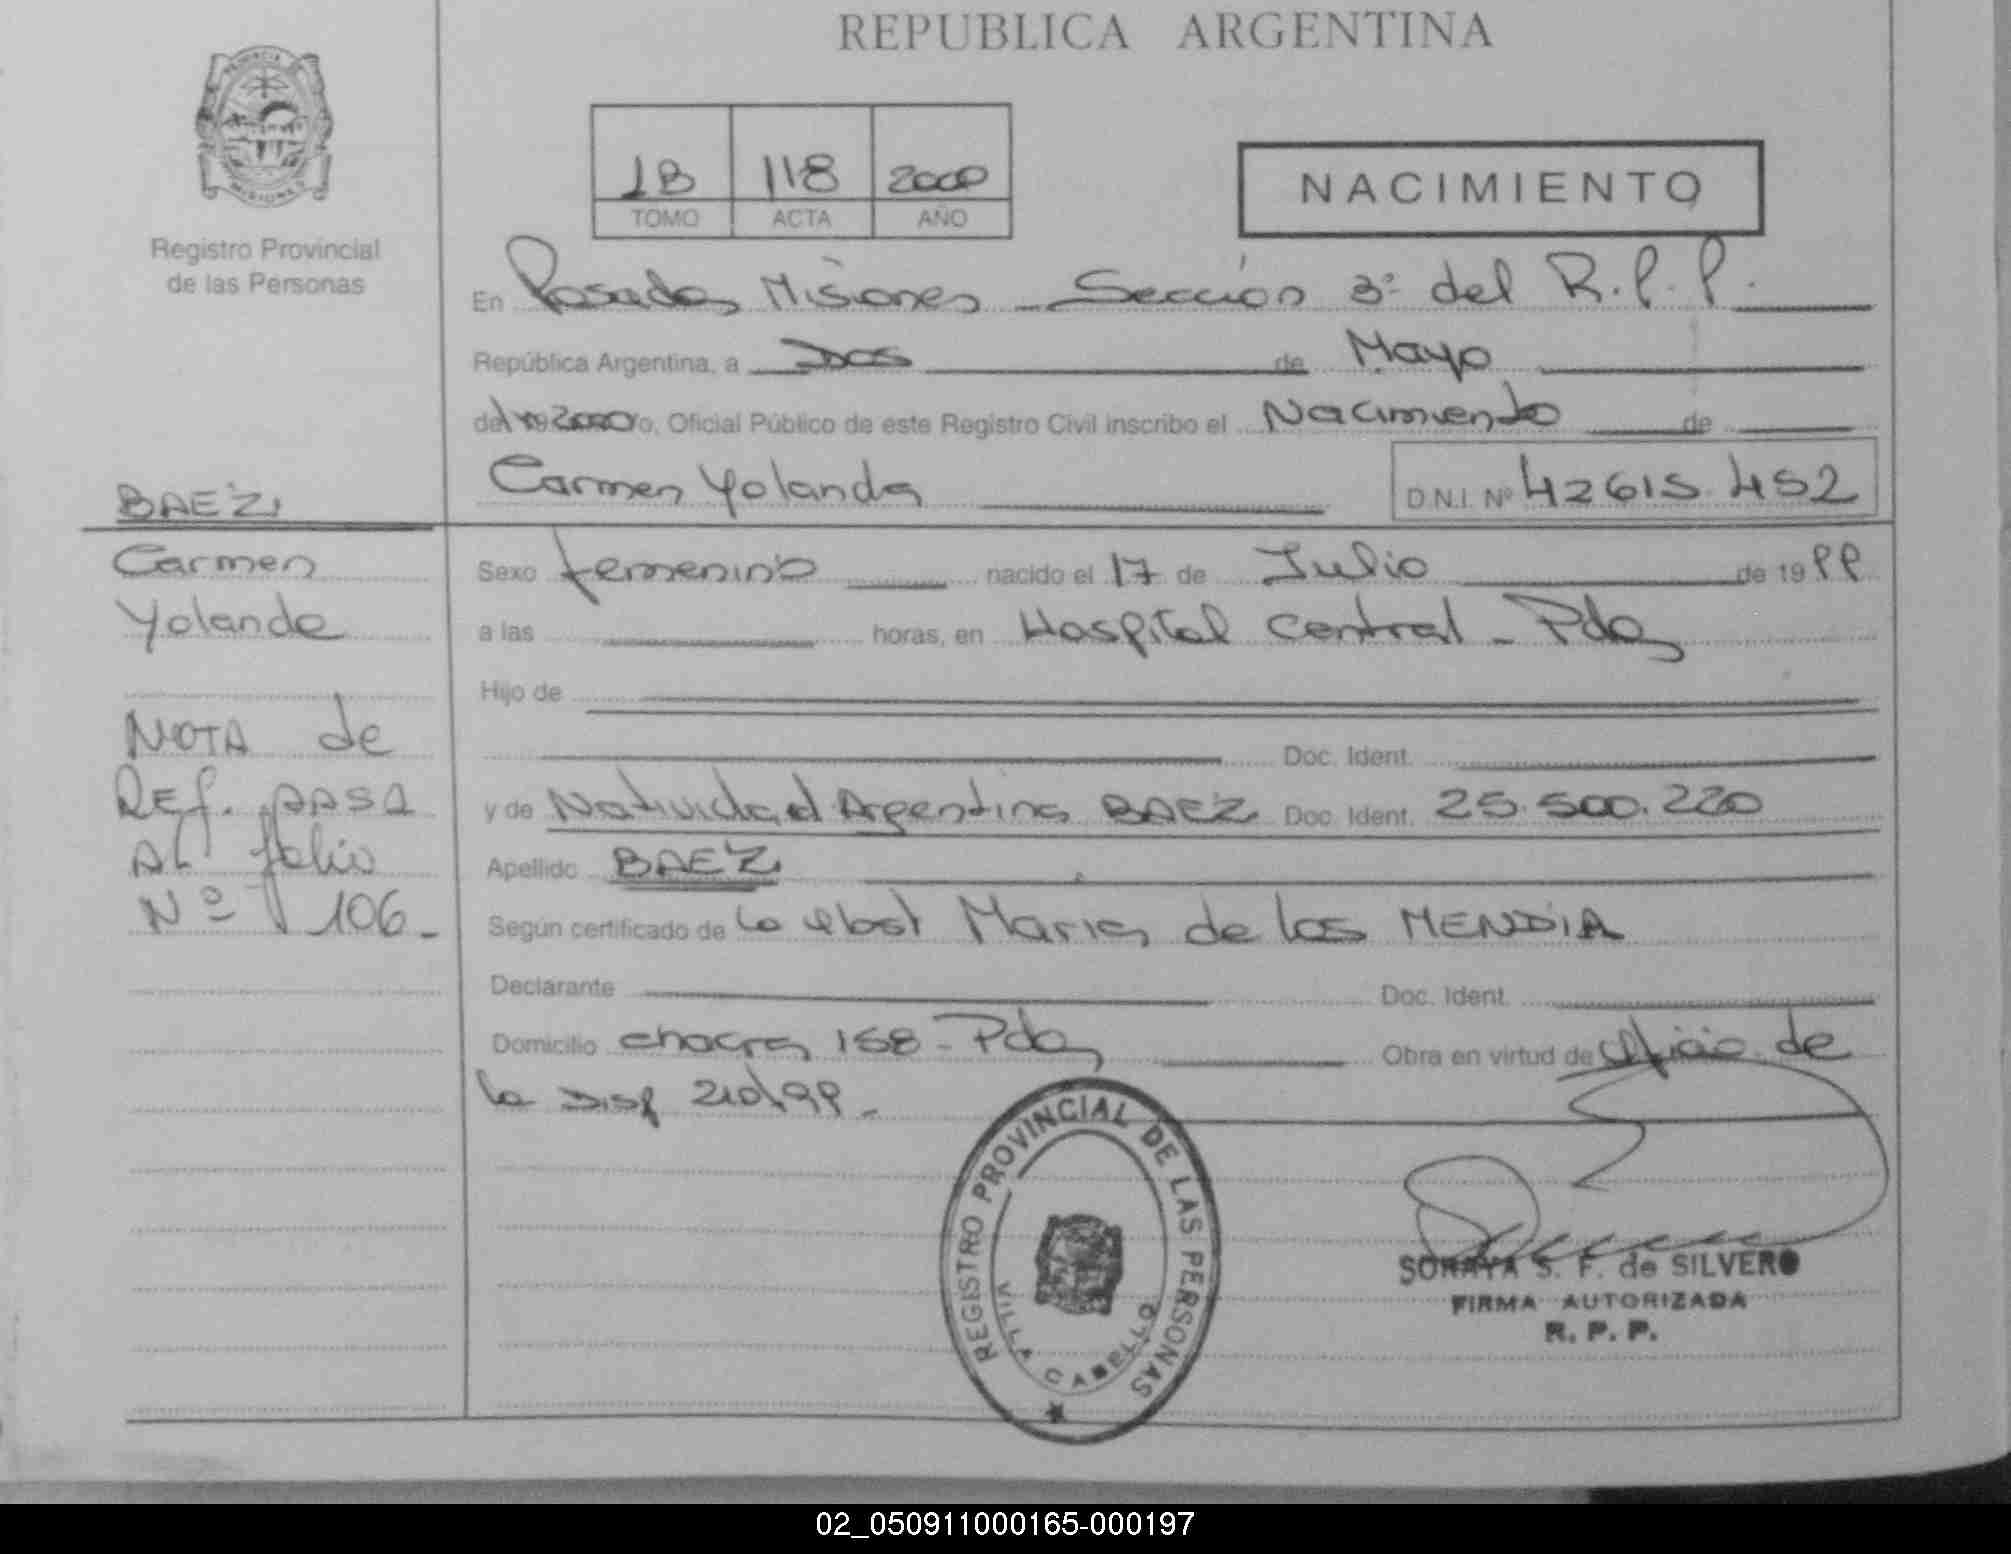 REPUBLICA ARGENTINA
PROVINCIA DE
MISIONES
Registro Provincial
de las Personas
1B 118 2000
TOMO ACTA AÑO
NACIMIENTO
En Posadas Misiones - Sección 3º del R.P.P.
República Argentina, a Dos de Mayo
de 2000 yo, Oficial Público de este Registro Civil inscribo el Nacimiento de
Carmen Yolanda D.N.I. Nº 42615.452
BAEZ
Carmen
Yolanda
NOTA de
REf. PASA
AL folio
Nº 106-
Sexo femenino nacido el 17 de Julio de 1999
a las horas, en Hospital Central - Pdas
Hijo de
Doc. Ident.
y de Natividad Argentina BAEZ Doc. Ident. 25.500.220
Apellido BAEZ
Según certificado de la obst Maria de los MENDIA
Declarante Doc. Ident.
Domicilio chacra 158 - Pdas Obra en virtud de oficio de
la Disp 210/99-
REGISTRO PROVINCIAL DE LAS PERSONAS
VILLA CABELLO
SORAYA S. F. de SILVERO
FIRMA AUTORIZADA
R. P. P.
02_050911000165-000197